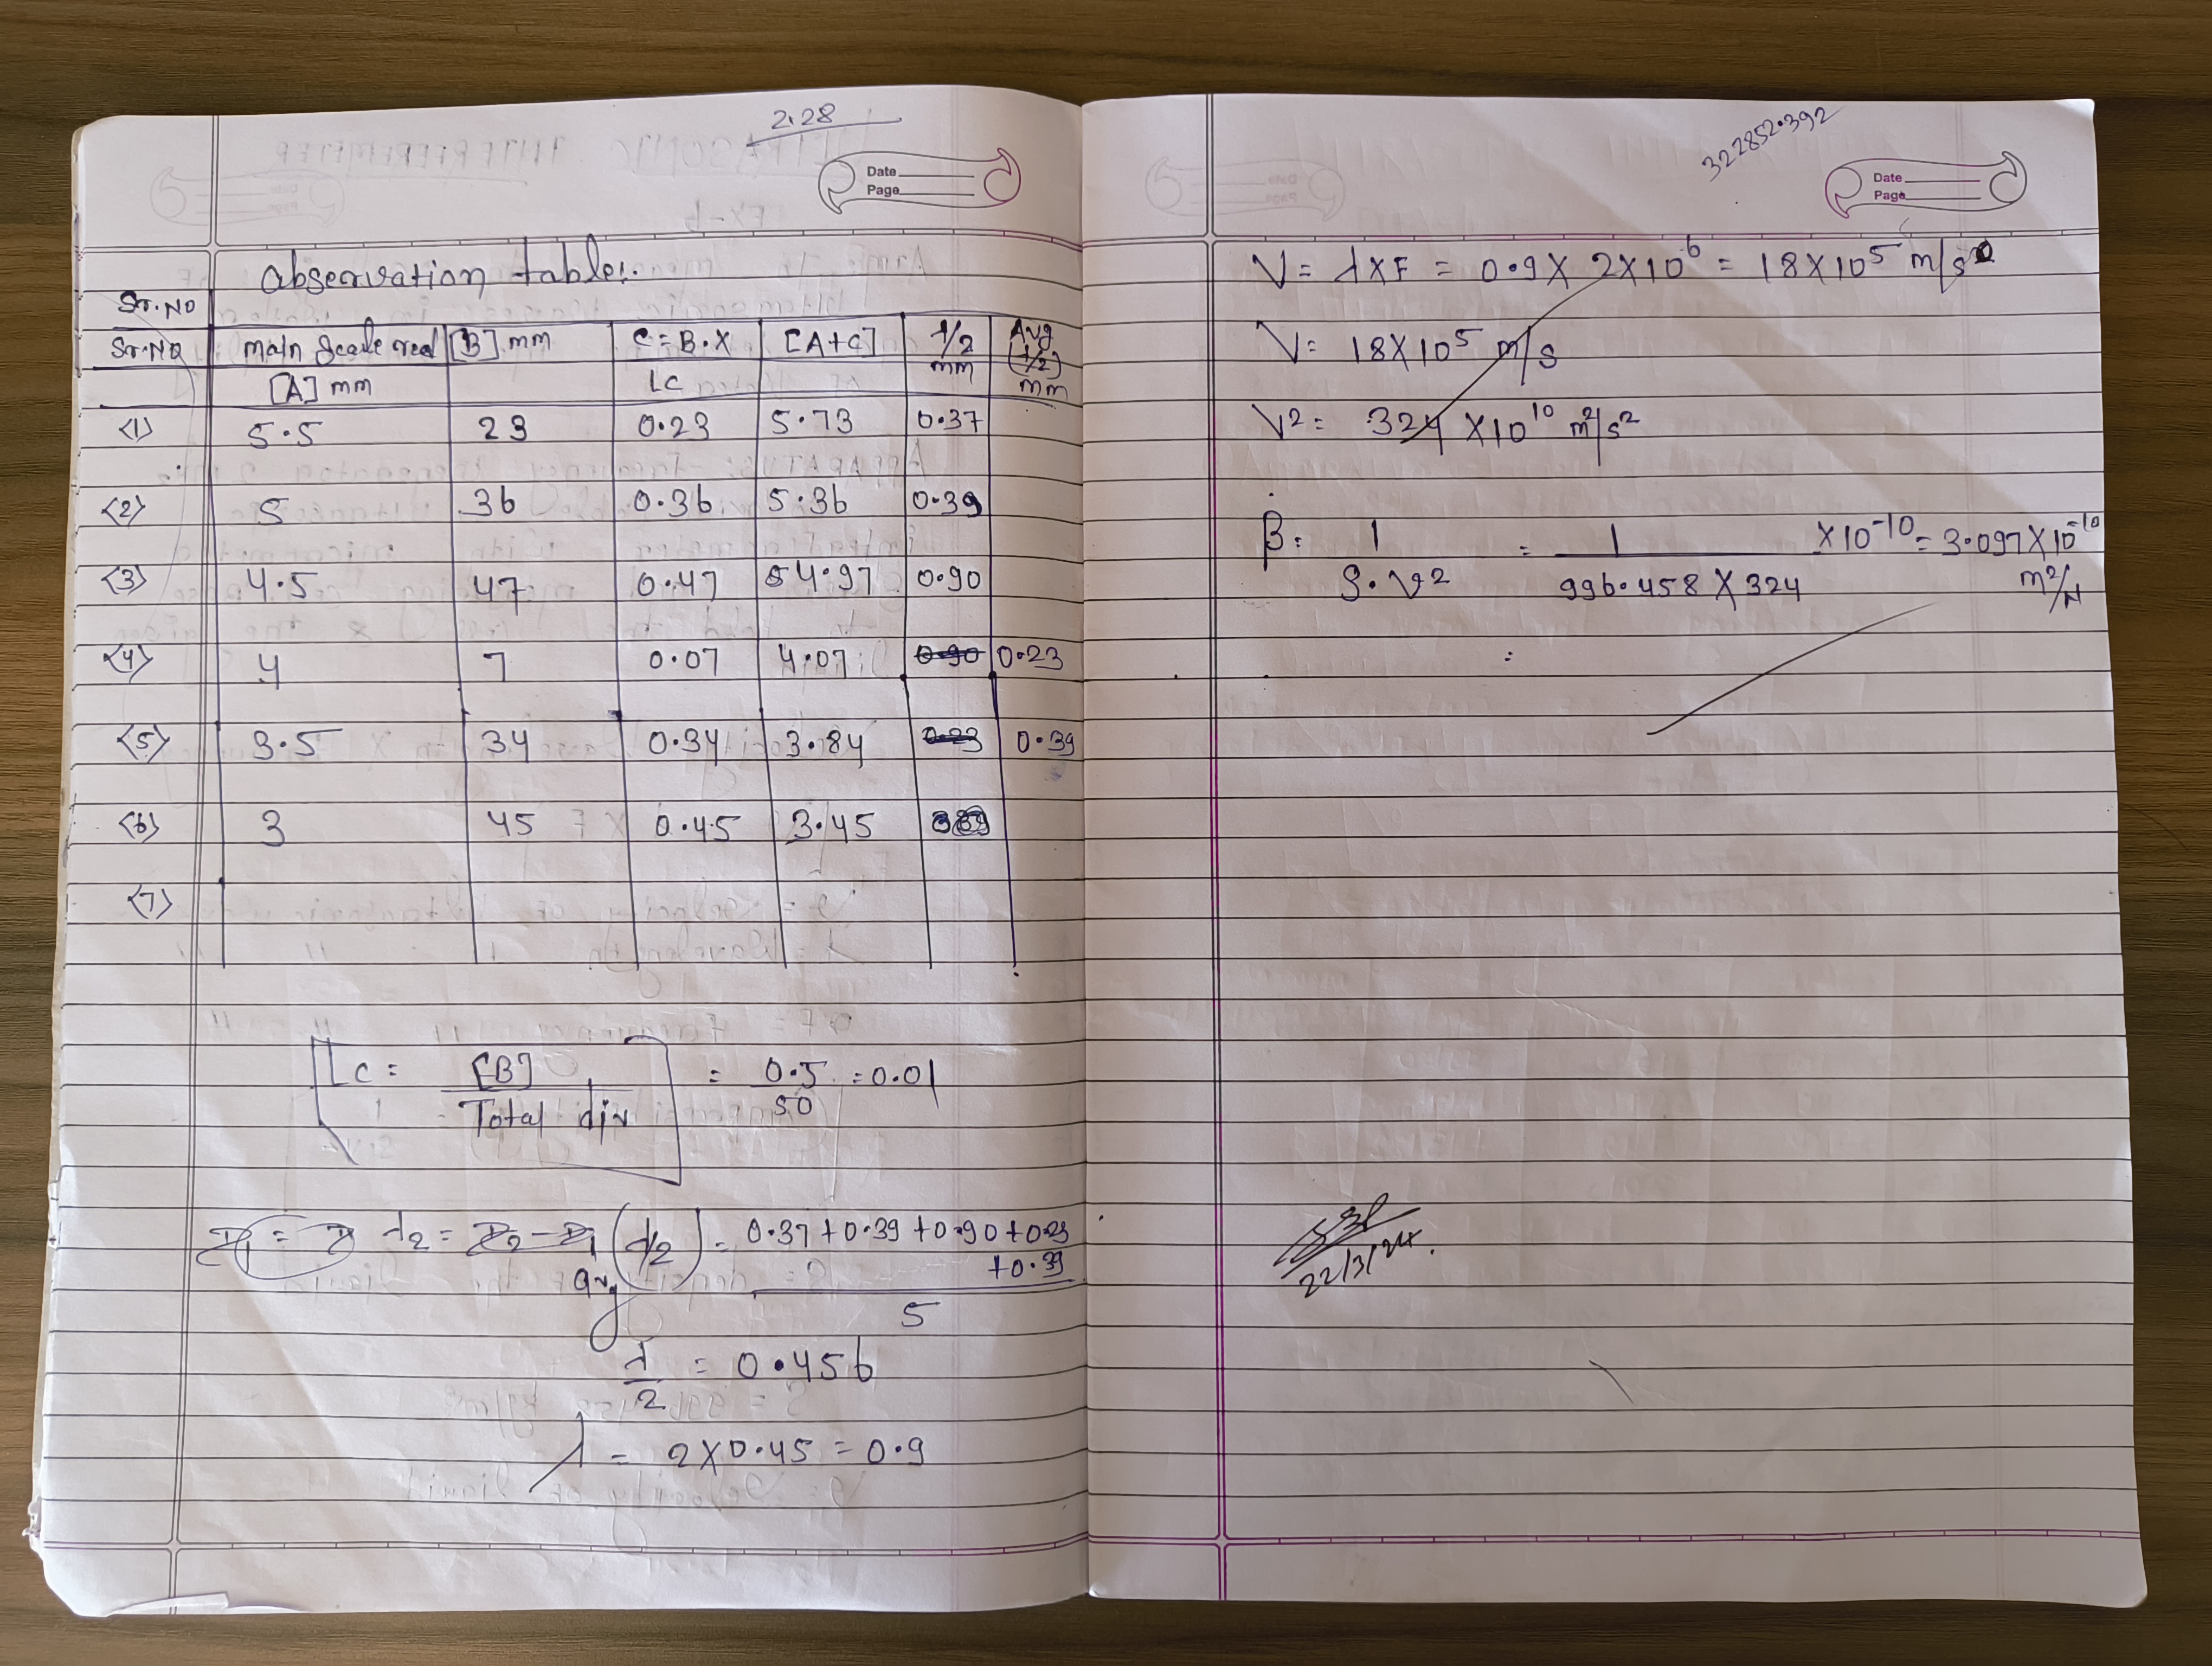 2.28
Date
Page
Observation table:.
Sr.No
Sr.NO main scale read [B] mm C = B.X [A+C] λ/2 Avg
[A] mm LC mm (λ/2) mm
<1> 5.5 23 0.23 5.73 0.37
<2> 5 36 0.36 5.36 0.39
<3> 4.5 47 0.47 4.97 0.90
<4> 4 7 0.07 4.07 0.90 0.23
<5> 3.5 34 0.34 3.84 0.23 0.39
<6> 3 45 0.45 3.45
<7>
LC = [B] / Total div = 0.5 / 50 = 0.01
λ2 = avg (λ/2) = 0.37 + 0.39 + 0.90 + 0.23
+ 0.39
5
λ/2 = 0.456
λ = 2 X 0.45 = 0.9
322852.392
Date
Page
V = λ X F = 0.9 X 2 X 10⁶ = 18 X 10⁵ m/s
V = 18 X 10⁵ m/s
V² = 324 X 10¹⁰ m²/s²
β = 1 / ρ.V² = 1 / 996.458 X 324 X 10⁻¹⁰ = 3.097 X 10⁻¹⁰
m²/N
22/3/24.